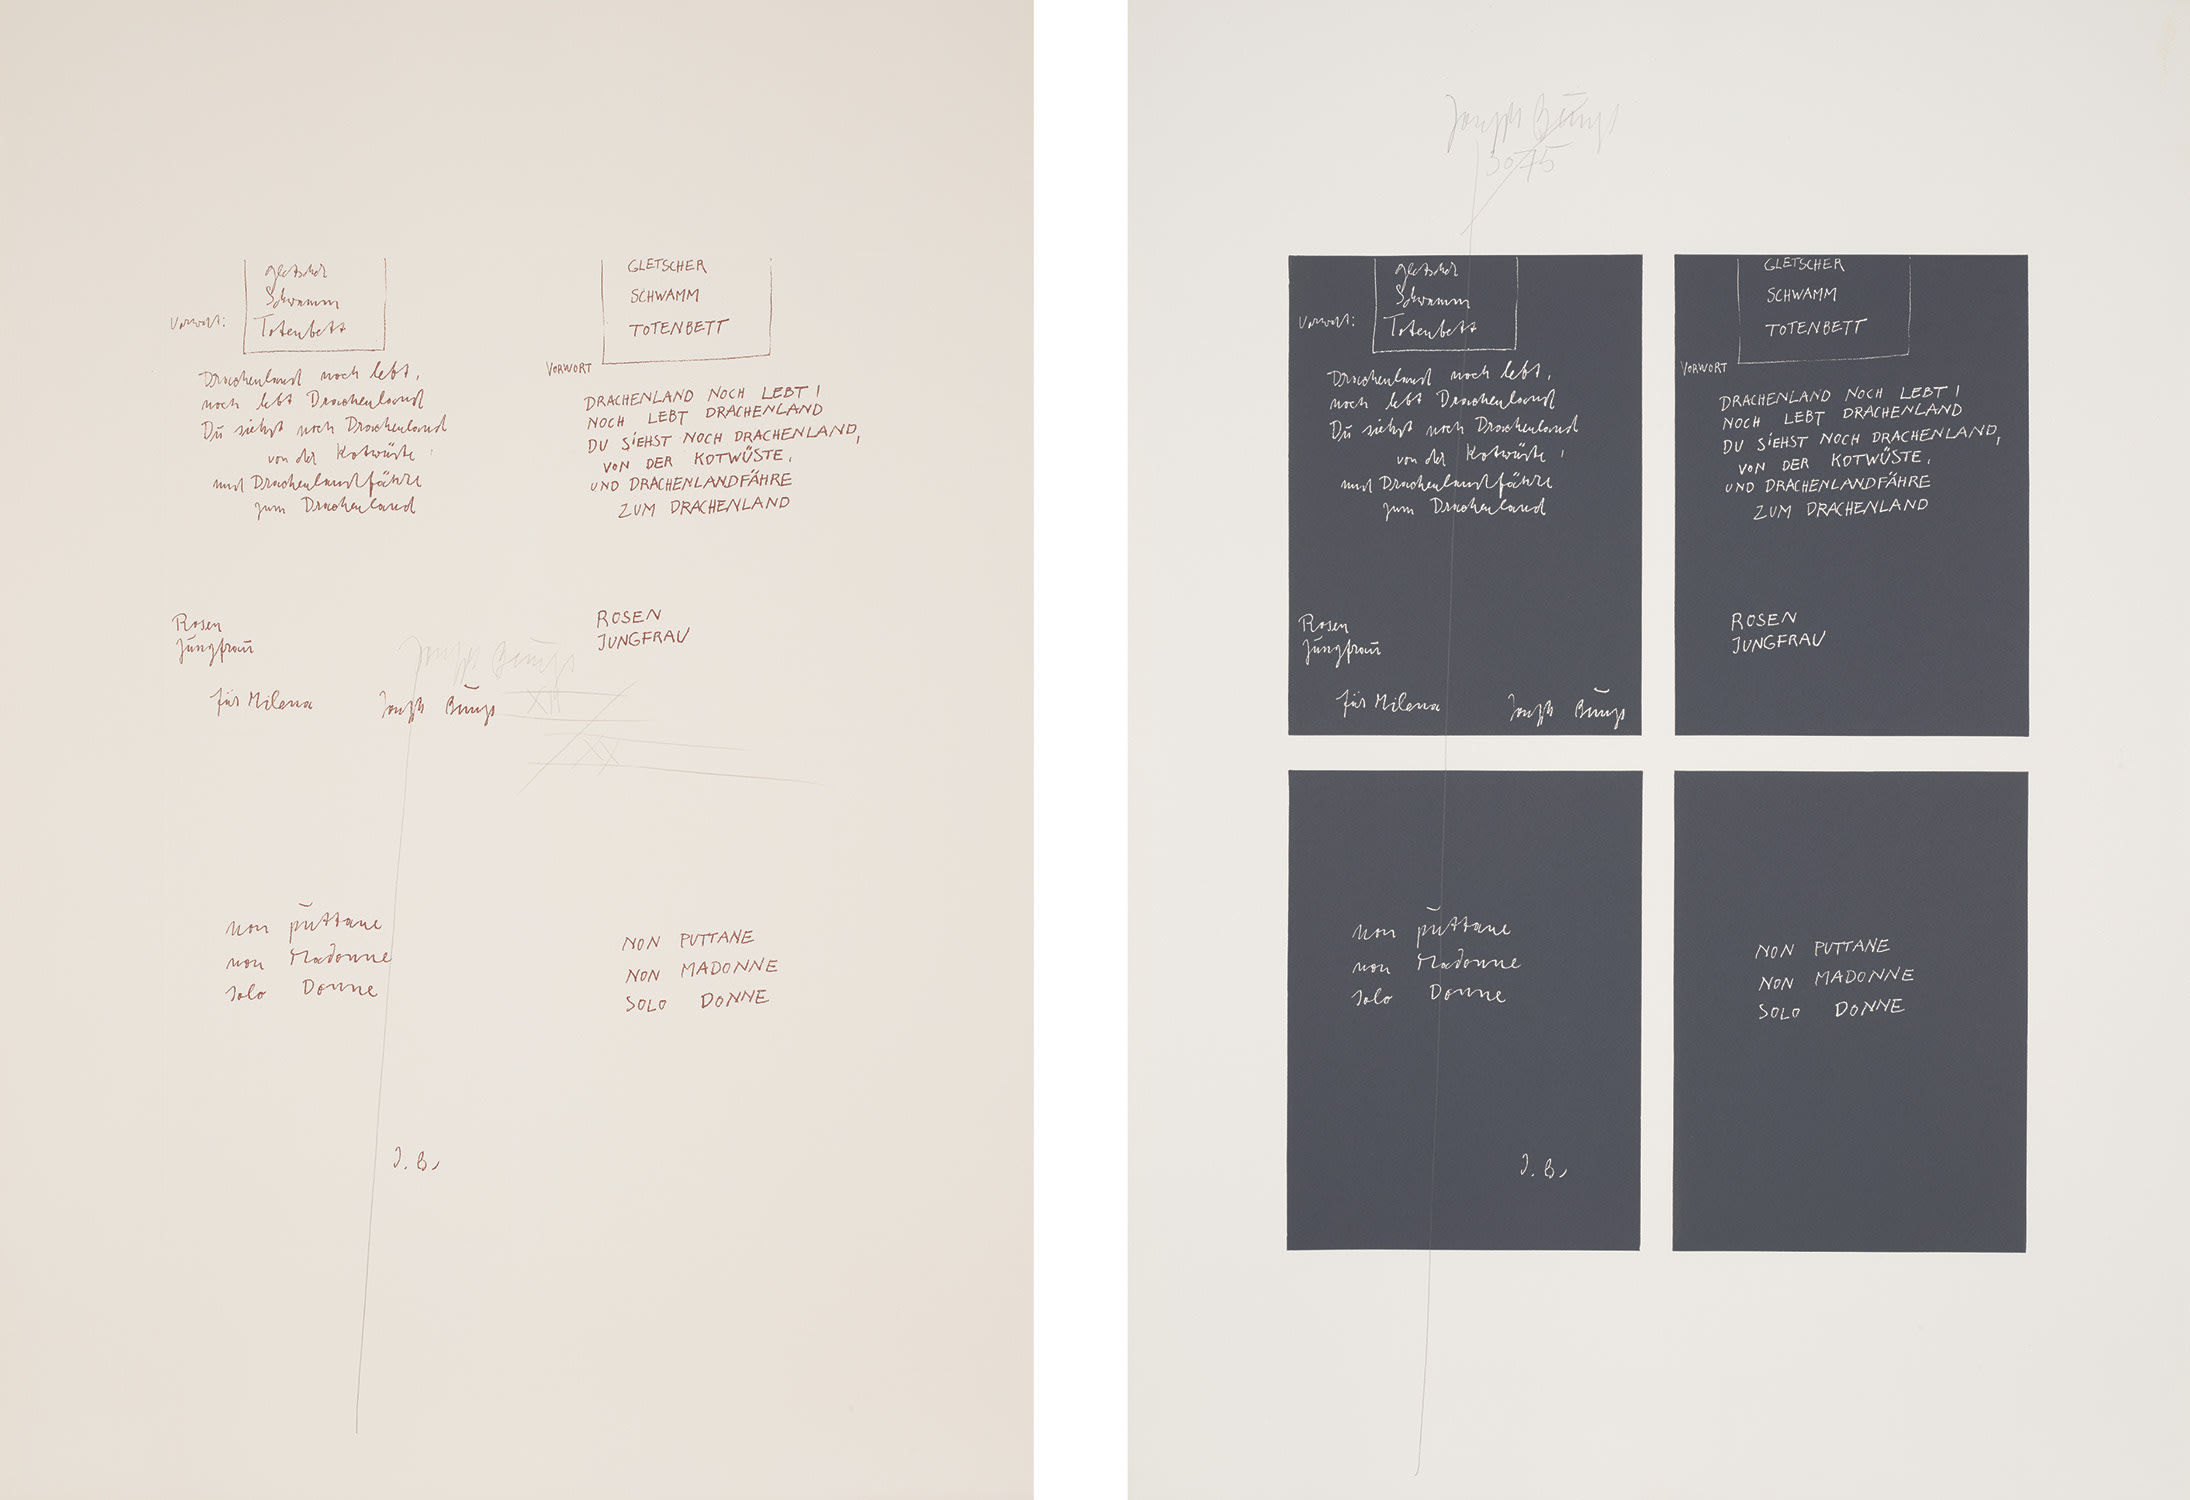 Gletscher
Schwamm
Vorwort: Totenbett
Drachenland noch lebt,
noch lebt Drachenland
Du siehst noch Drachenland
von der Kotwüste,
und Drachenlandfähre
zum Drachenland
Rosen
Jungfrau
für Milena Joseph Beuys
GLETSCHER
SCHWAMM
TOTENBETT
VORWORT
DRACHENLAND NOCH LEBT!
NOCH LEBT DRACHENLAND
DU SIEHST NOCH DRACHENLAND,
VON DER KOTWÜSTE,
UND DRACHENLANDFÄHRE
ZUM DRACHENLAND
ROSEN
JUNGFRAU
Joseph Beuys
XX
non puttane
non Madonne
solo Donne
J. B.
NON PUTTANE
NON MADONNE
SOLO DONNE
Joseph Beuys
30/75
Gletscher
Schwamm
Vorwort: Totenbett
Drachenland noch lebt,
noch lebt Drachenland
Du siehst noch Drachenland
von der Kotwüste,
und Drachenlandfähre
zum Drachenland
Rosen
Jungfrau
für Milena Joseph Beuys
GLETSCHER
SCHWAMM
TOTENBETT
VORWORT
DRACHENLAND NOCH LEBT!
NOCH LEBT DRACHENLAND
DU SIEHST NOCH DRACHENLAND,
VON DER KOTWÜSTE,
UND DRACHENLANDFÄHRE
ZUM DRACHENLAND
ROSEN
JUNGFRAU
non puttane
non Madonne
solo Donne
J. B.
NON PUTTANE
NON MADONNE
SOLO DONNE